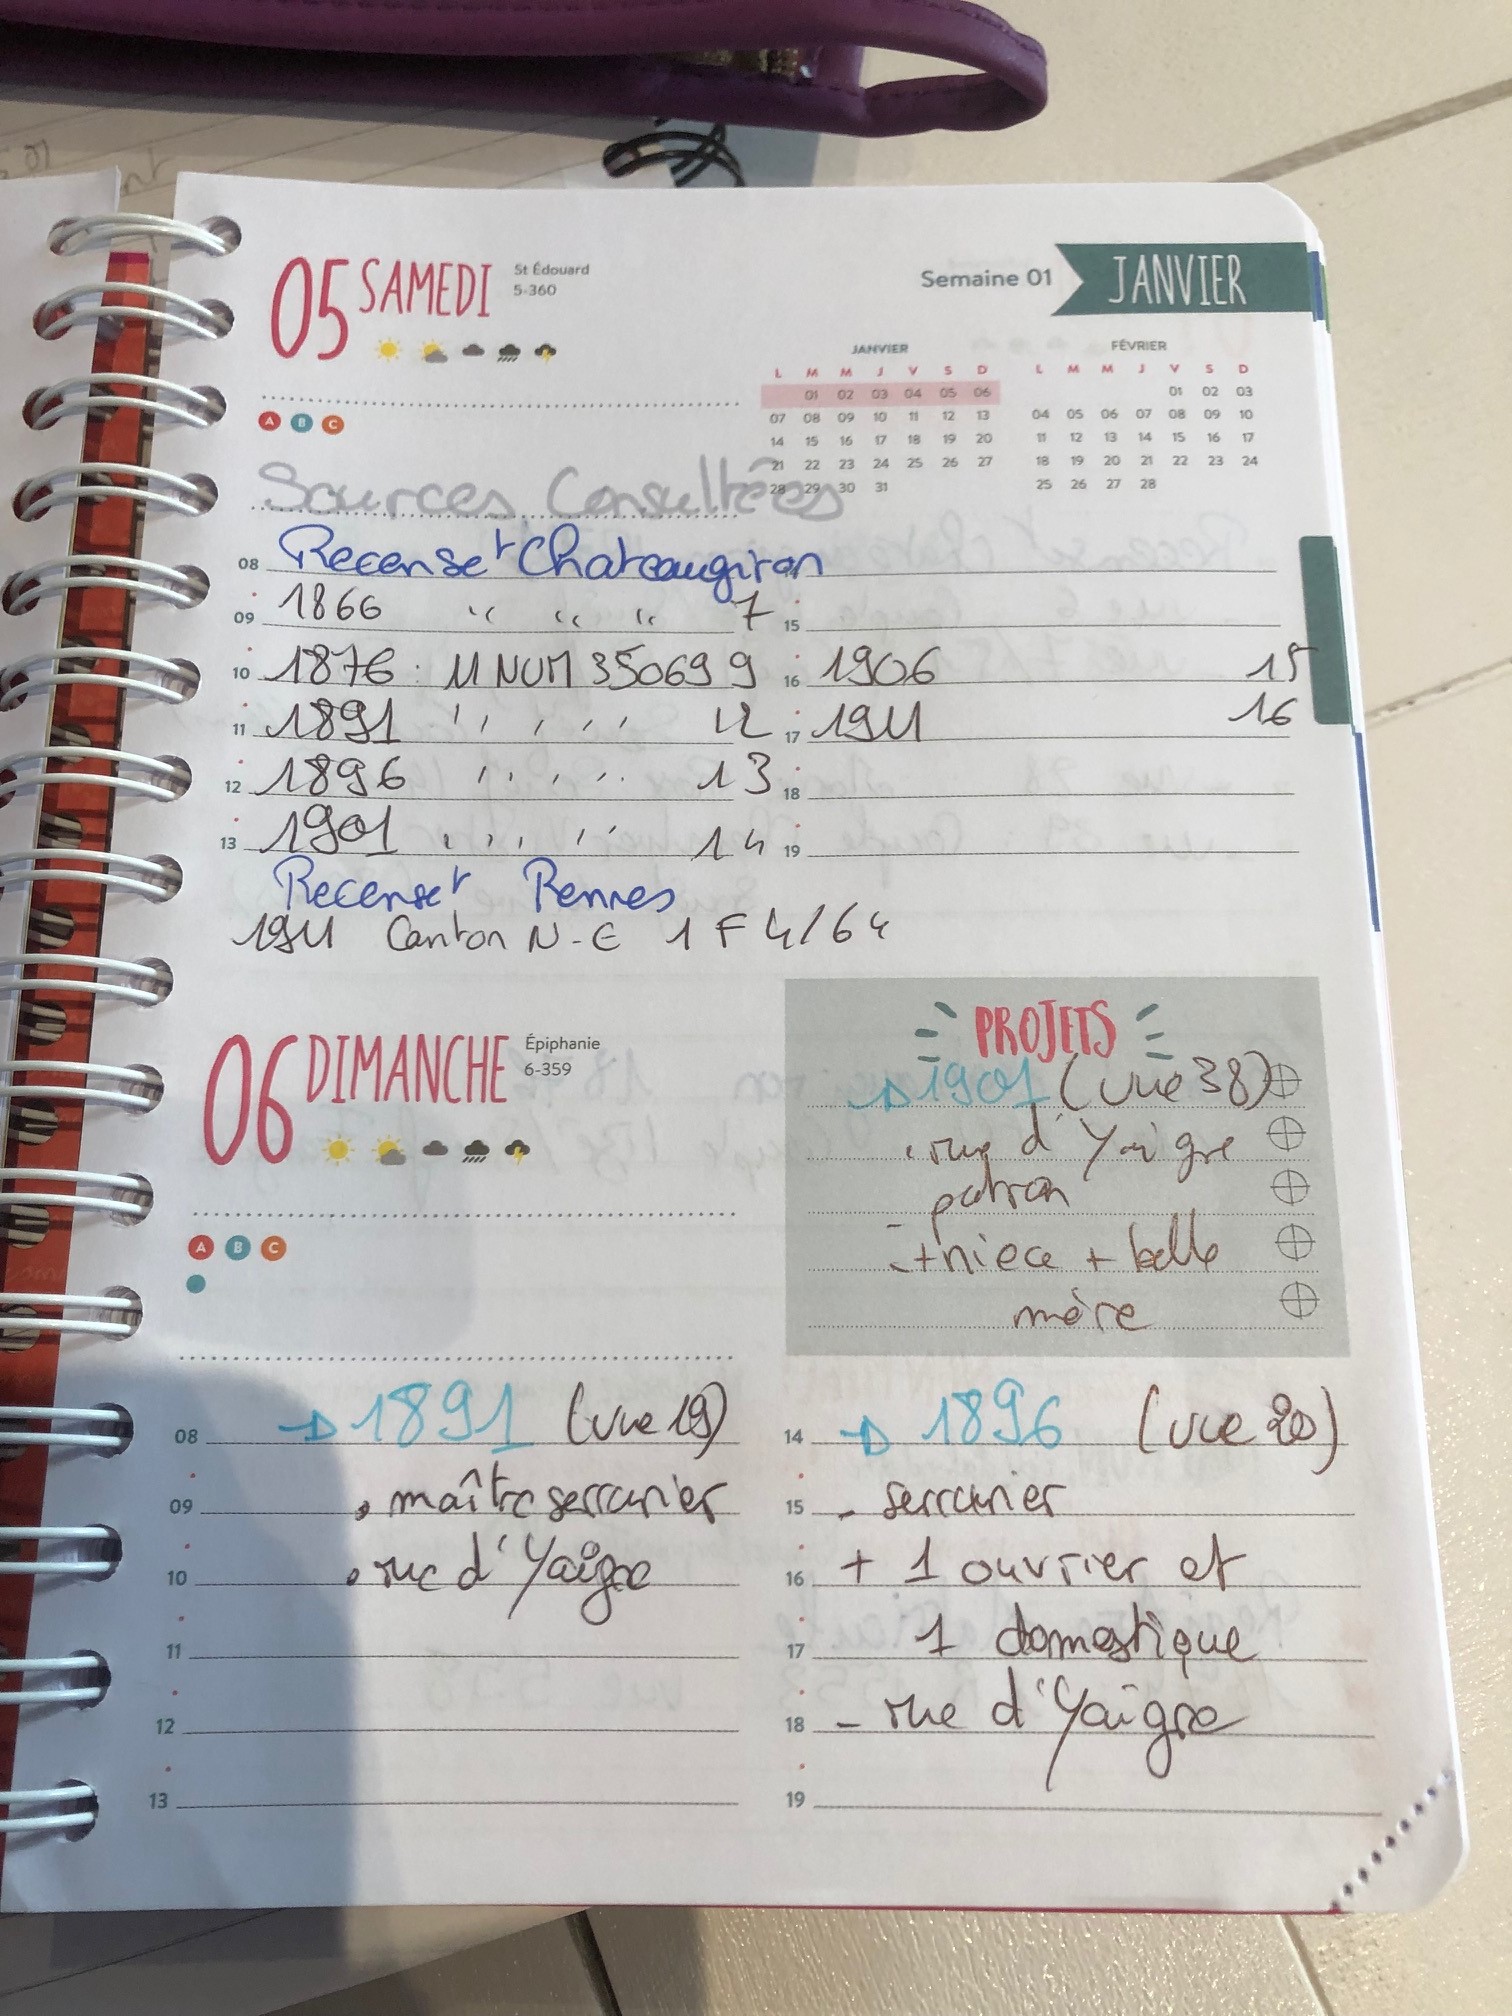 05 SAMEDI
St Édouard
5-360
Semaine 01
JANVIER
JANVIER
L M M J V S D
01 02 03 04 05 06
07 08 09 10 11 12 13
14 15 16 17 18 19 20
21 22 23 24 25 26 27
28 29 30 31
FÉVRIER
L M M J V S D
01 02 03
04 05 06 07 08 09 10
11 12 13 14 15 16 17
18 19 20 21 22 23 24
25 26 27 28
A B C
Sources Consultées
08 Recenset Chateaugiron
09 1866 " " " 7
15
10 1876 : 11 NUM 35069 9
16 1906 15
11 1891 " " " 12
17 1911 16
12 1896 " " " 13
18
13 1901 " " " 14
19
Recenset Rennes
1911 Canton N-E 1 F 4/64
06 DIMANCHE
Épiphanie
6-359
A B C
PROJETS
→ 1901 (vue 38)
. rue d'Yaigre
patron
- + niece + belle
mère
08 → 1891 (vue 19)
09 . maître serrurier
10 . rue d'Yaigre
11
12
13
14 → 1896 (vue 20)
15 - serrurier
16 + 1 ouvrier et
17 1 domestique
18 - rue d'Yaigre
19